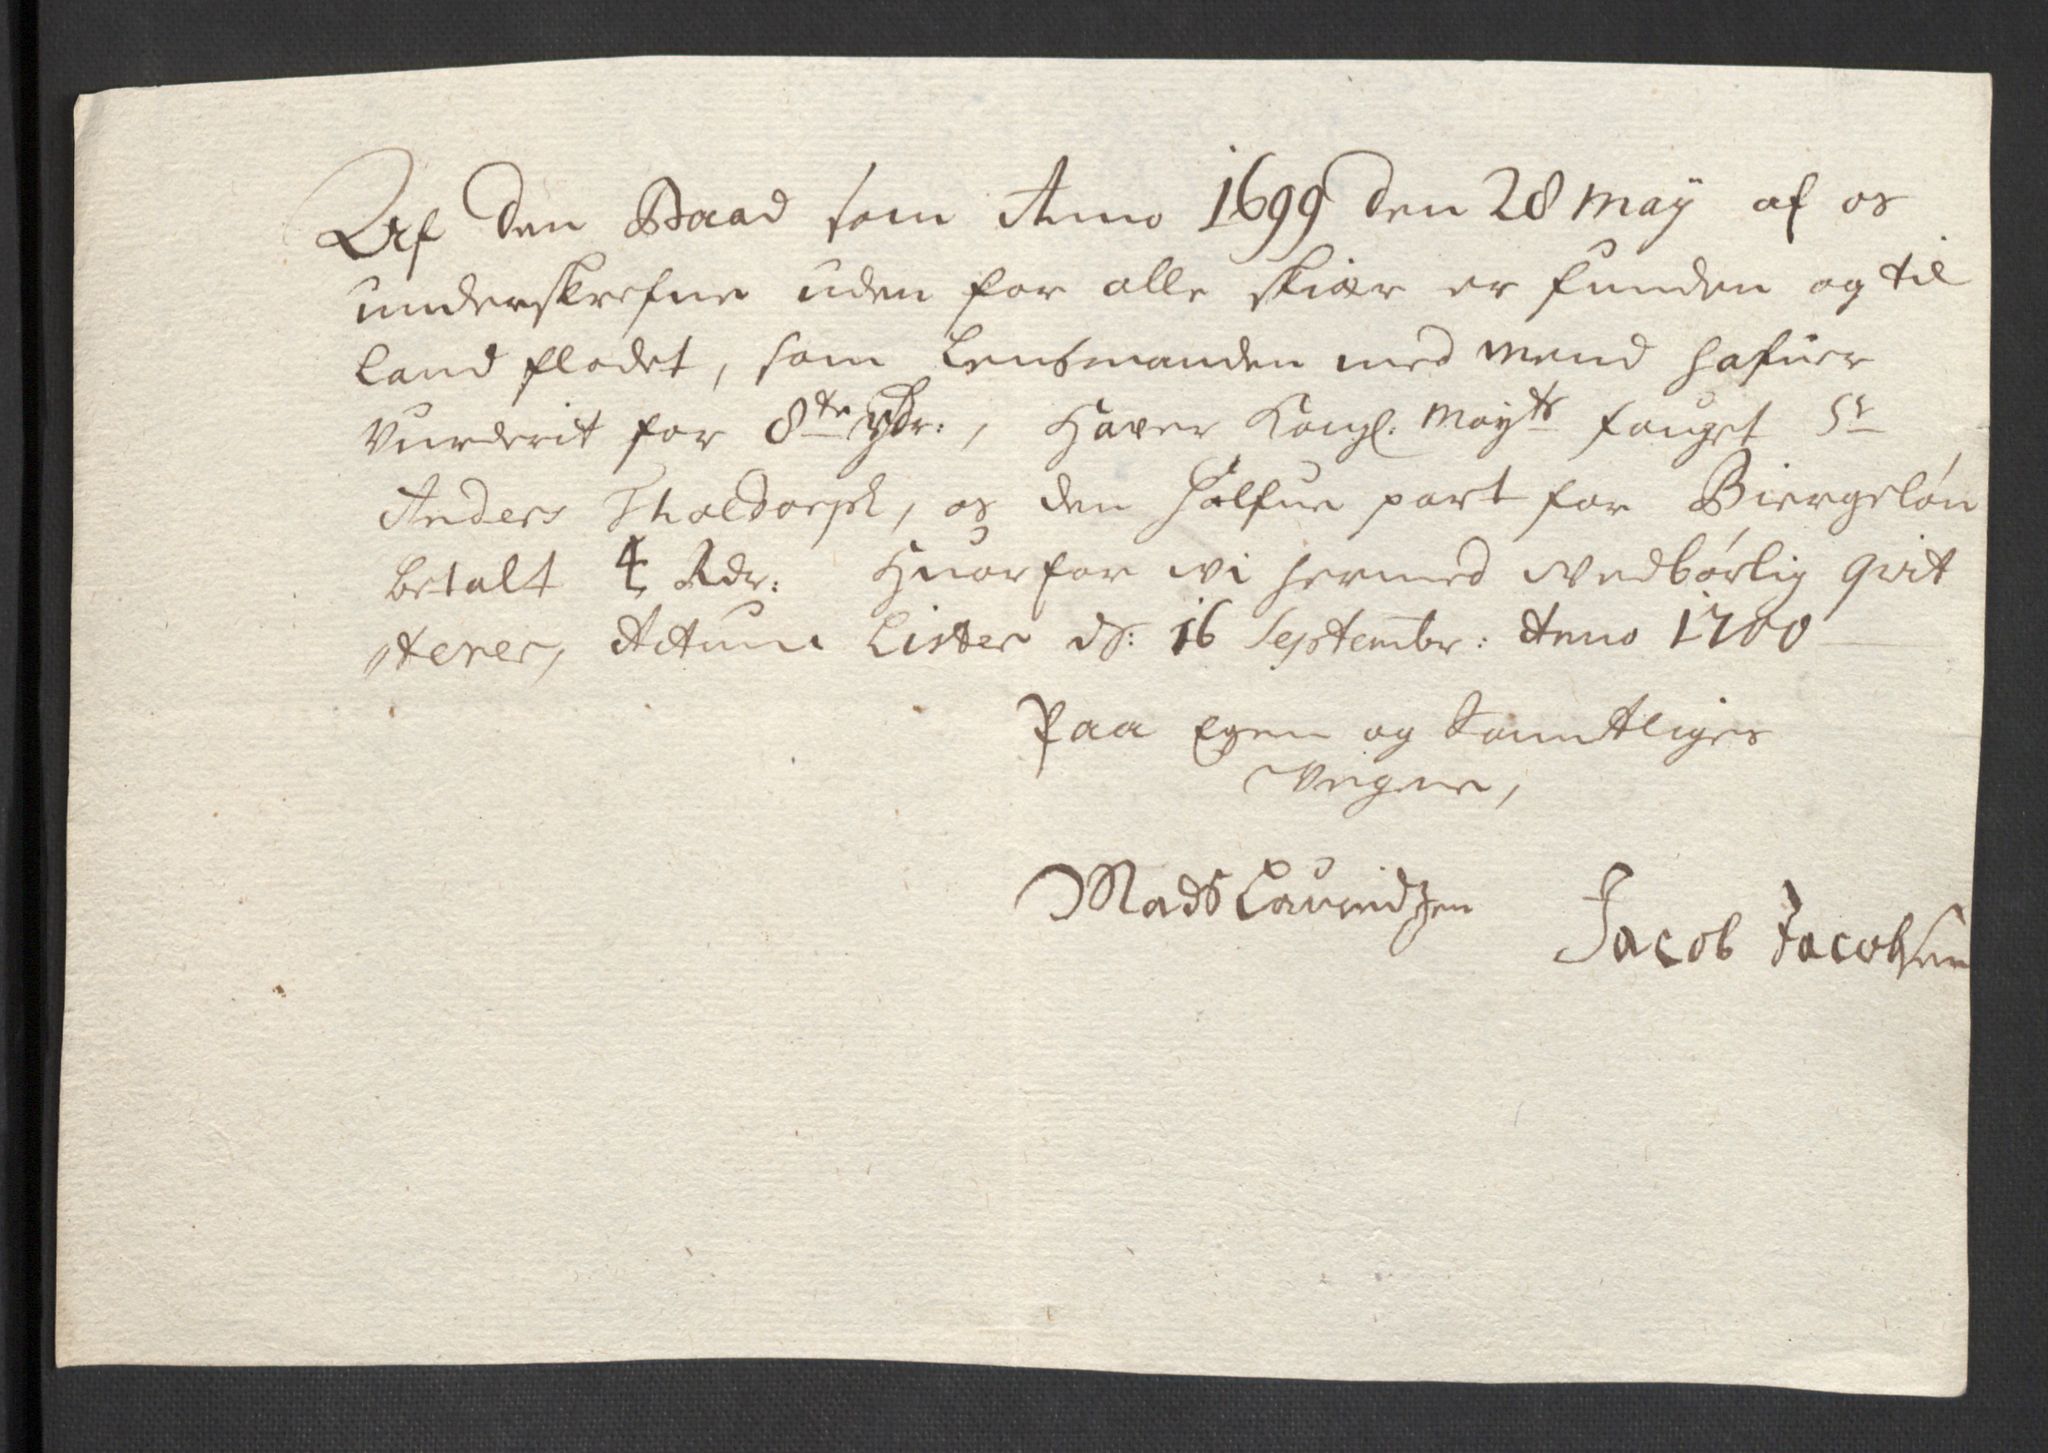 Af den Baad som Anno 1699 den 28 May af os
underskrefne uden for alle skiær er funden og til
land flodet, som Lensmanden med mend hafuer
vurderit for 8te Rdr:, Haver Kongl. Mayts fouget Sr
Anders Tholdorph, os den halfue part for Biergeløn
betalt 4 Rdr: Huorfor wi hermed wedbørlig qvit
terer, Actum Lister ds: 16 Septembr: Anno 1700
Paa Egen og Samtliges
Vegne,
Mads Lauridzen Jacob Jacobsen